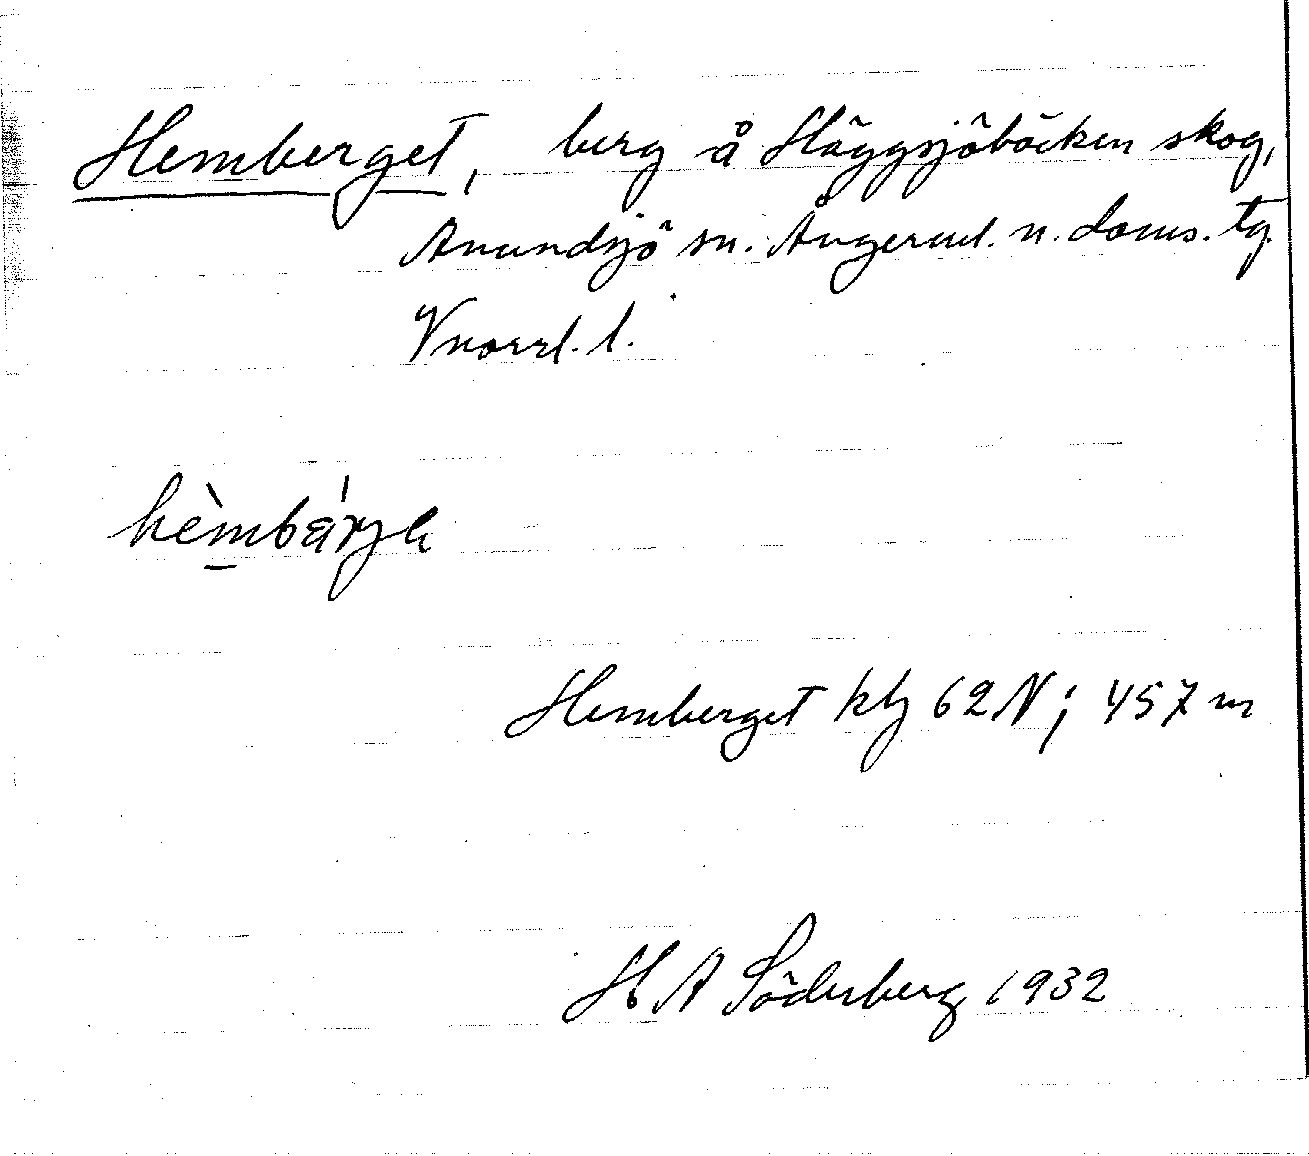 Hemberget, berg å Häggsjöbäcken skog,
Anundsjö sn. Ångerml. n. doms. tg.
Vnorrl. l.
Hemberget kbl 62 N; 457 m
H A Söderberg 1932